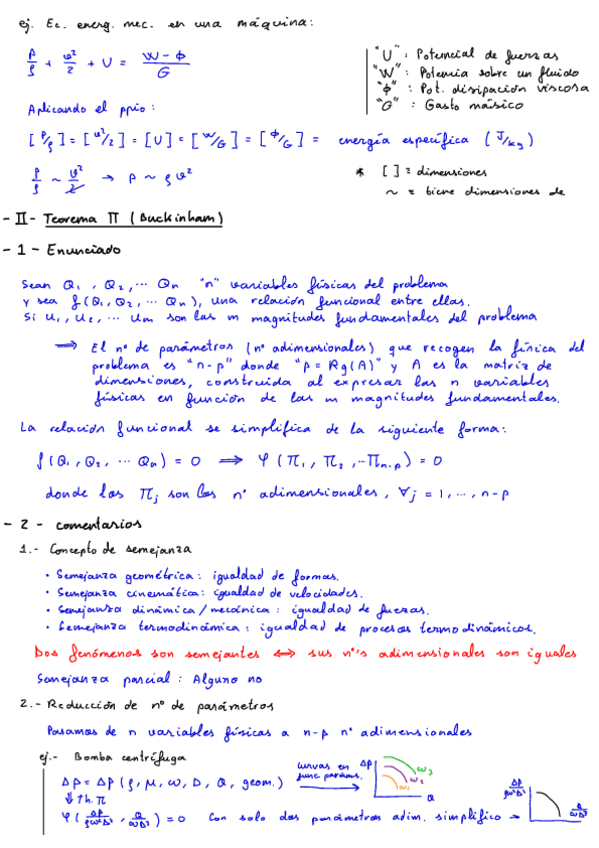 ej. Ec. energ. mec. en una máquina:
P/ρ + v²/2 + U = (W - Φ)/G
"U" : Potencial de fuerzas
"W" : Potencia sobre un fluido
"Φ" : Pot. disipación viscosa
"G" : Gasto másico
Aplicando el ppio:
[P/ρ] = [v²/2] = [U] = [W/G] = [Φ/G] = energía específica (J/kg)
P/ρ ~ v²/2 → P ~ ρv²
* [ ] = dimensiones
~ = tiene dimensiones de
- II - Teorema Π (Buckinham)
- 1 - Enunciado
Sean Q₁, Q₂, ... Qn "n" variables físicas del problema
y sea f(Q₁, Q₂, ... Qn), una relación funcional entre ellas.
Si u₁, u₂, ... um son las m magnitudes fundamentales del problema
⇒ El nº de parámetros (nº adimensionales) que recogen la física del
problema es "n-p" donde "p = Rg(A)" y A es la matriz de
dimensiones, construida al expresar las n variables
físicas en función de las m magnitudes fundamentales.
La relación funcional se simplifica de la siguiente forma:
f(Q₁, Q₂, ... Qn) = 0 ⇒ φ(Π₁, Π₂, ... Πn-p) = 0
donde los Πj son los nº adimensionales, ∀j = 1, ..., n-p
- 2 - comentarios
1.- Concepto de semejanza
• Semejanza geométrica: igualdad de formas.
• Semejanza cinemática: igualdad de velocidades.
• Semejanza dinámica/mecánica: igualdad de fuerzas.
• Semejanza termodinámica: igualdad de procesos termodinámicos.
Dos fenómenos son semejantes ⇔ sus nº's adimensionales son iguales
Semejanza parcial: Alguno no
2.- Reducción de nº de parámetros
Pasamos de n variables físicas a n-p nº adimensionales
ej.- Bomba centrífuga
Δp = Δp (ρ, μ, ω, D, Q, geom.)
curvas en
func. parám.
Δp
ω₃
ω₂
ω₁
Q
⇓ th. Π
φ(Δp/ρω²D², Q/ωD³) = 0 Con solo dos parámetros adim. simplifico →
Δp/ρω²D²
Q/ωD³